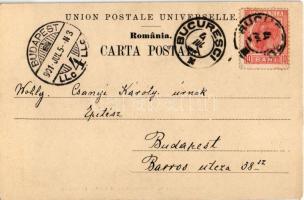 UNION POSTALE UNIVERSELLE
România.
CARTA POSTALA
BUDAPEST
901 JUL. 5 - N 3
BUCURESCI
4
BANI
Wohlg. Csányi Károly úrnak
Építész
Budapest
Baross utcza 38